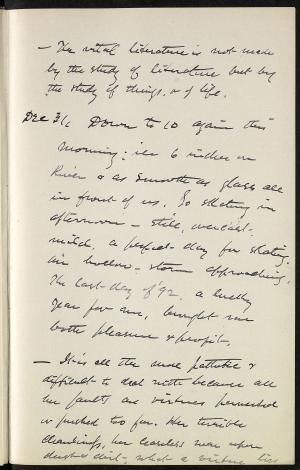 — The vital literature is not made
by the study of literature but by
the study of things, & of life.
Dec 31, Down to 10 again this
morning; ice 6 inches on
River & as smooth as glass all
in front of us. Go skating in
afternoon — still, overcast,
mild, a perfect day for skating.
air hollow — storm approaching.
The last day of '92, a lucky
year for me, brought me
both pleasure & profit.
— It is all the more pathetic &
difficult to deal with because all
her faults are virtues perverted
or pushed too far. Her terrible
cleanliness, her ceaseless war upon
dust & dirt — what a virtue lies